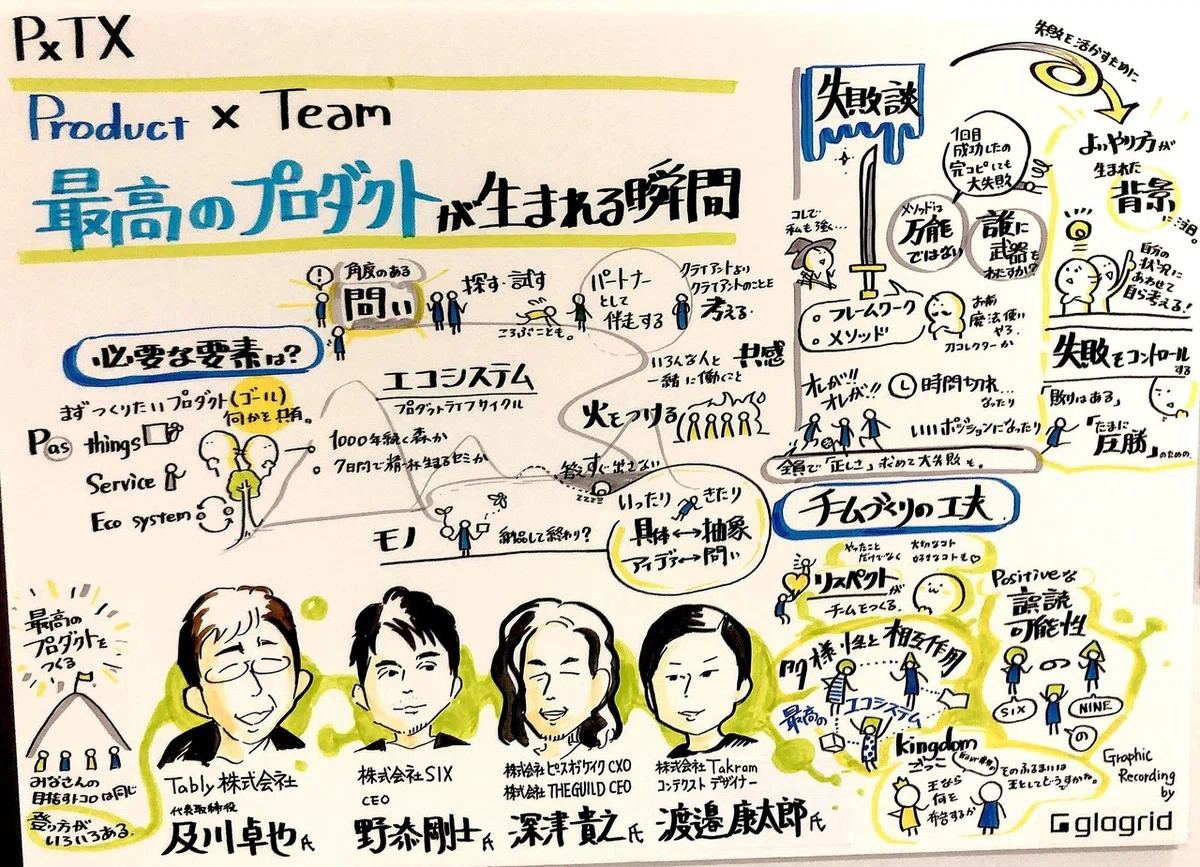 PxTX
Product x Team
最高のプロダクトが生まれる瞬間
必要な要素は?
まずつくりたいプロダクト(ゴール)
何かを共有。
Pas things
Service
Eco system
1000年続く森か
7日間で精一杯生きるセミか
角度のある
問い
探す・試す
ころぶことも。
パートナー
として
伴走する
クライアントより
クライアントのことを
考える.
エコシステム
プロダクトライフサイクル
いろんな人と 共感
一緒に働くこと
火をつける
答えすぐ出さない
zzzz
モノ
納品して終わり?
いったり きたり
具体↔抽象
アイデア↔問い
失敗談
1日目
成功したの
完コピしても
大失敗
コレで
私も強く…
メソッドは
万能
ではない
誰に
武器を
わたすか?
フレームワーク
メソッド
お前
魔法使い
やろ.
刀コレクターか
オレが!!
オレが!!
時間切れ…
なったり
いいポジションになったり
全員で「正しさ」求めて大失敗も。
失敗を活かすために
よいやり方が
生まれた
背景
に注目。
自分の
状況に
あわせて
自ら考える!
失敗をコントロール
する
「敗けはある」
「たまに
圧勝」のための.
チームづくりの工夫
やったこと
だけでなく
大切なコト
好きなコトも♡
リスペクトが
チームをつくる.
多様性と相互作用
最高の エコシステム
Positiveな
誤読
可能性
の
SIX
NINE
の
kingdom
ごっこ
王なら
何を
布告するか
そのふるまいは
王としてどうすかな。
最高の
プロダクトを
つくる
みなさんの
目指すトコロは同じ
登り方が
いろいろある.
Tably 株式会社
代表取締役
及川卓也氏
株式会社SIX
CEO
野添剛士氏
株式会社ピースオブケイク CXO
株式会社 THE GUILD CEO
深津貴之氏
株式会社 Takram
コンテクストデザイナー
渡邉康太郎氏
Graphic
Recording
by
glagrid